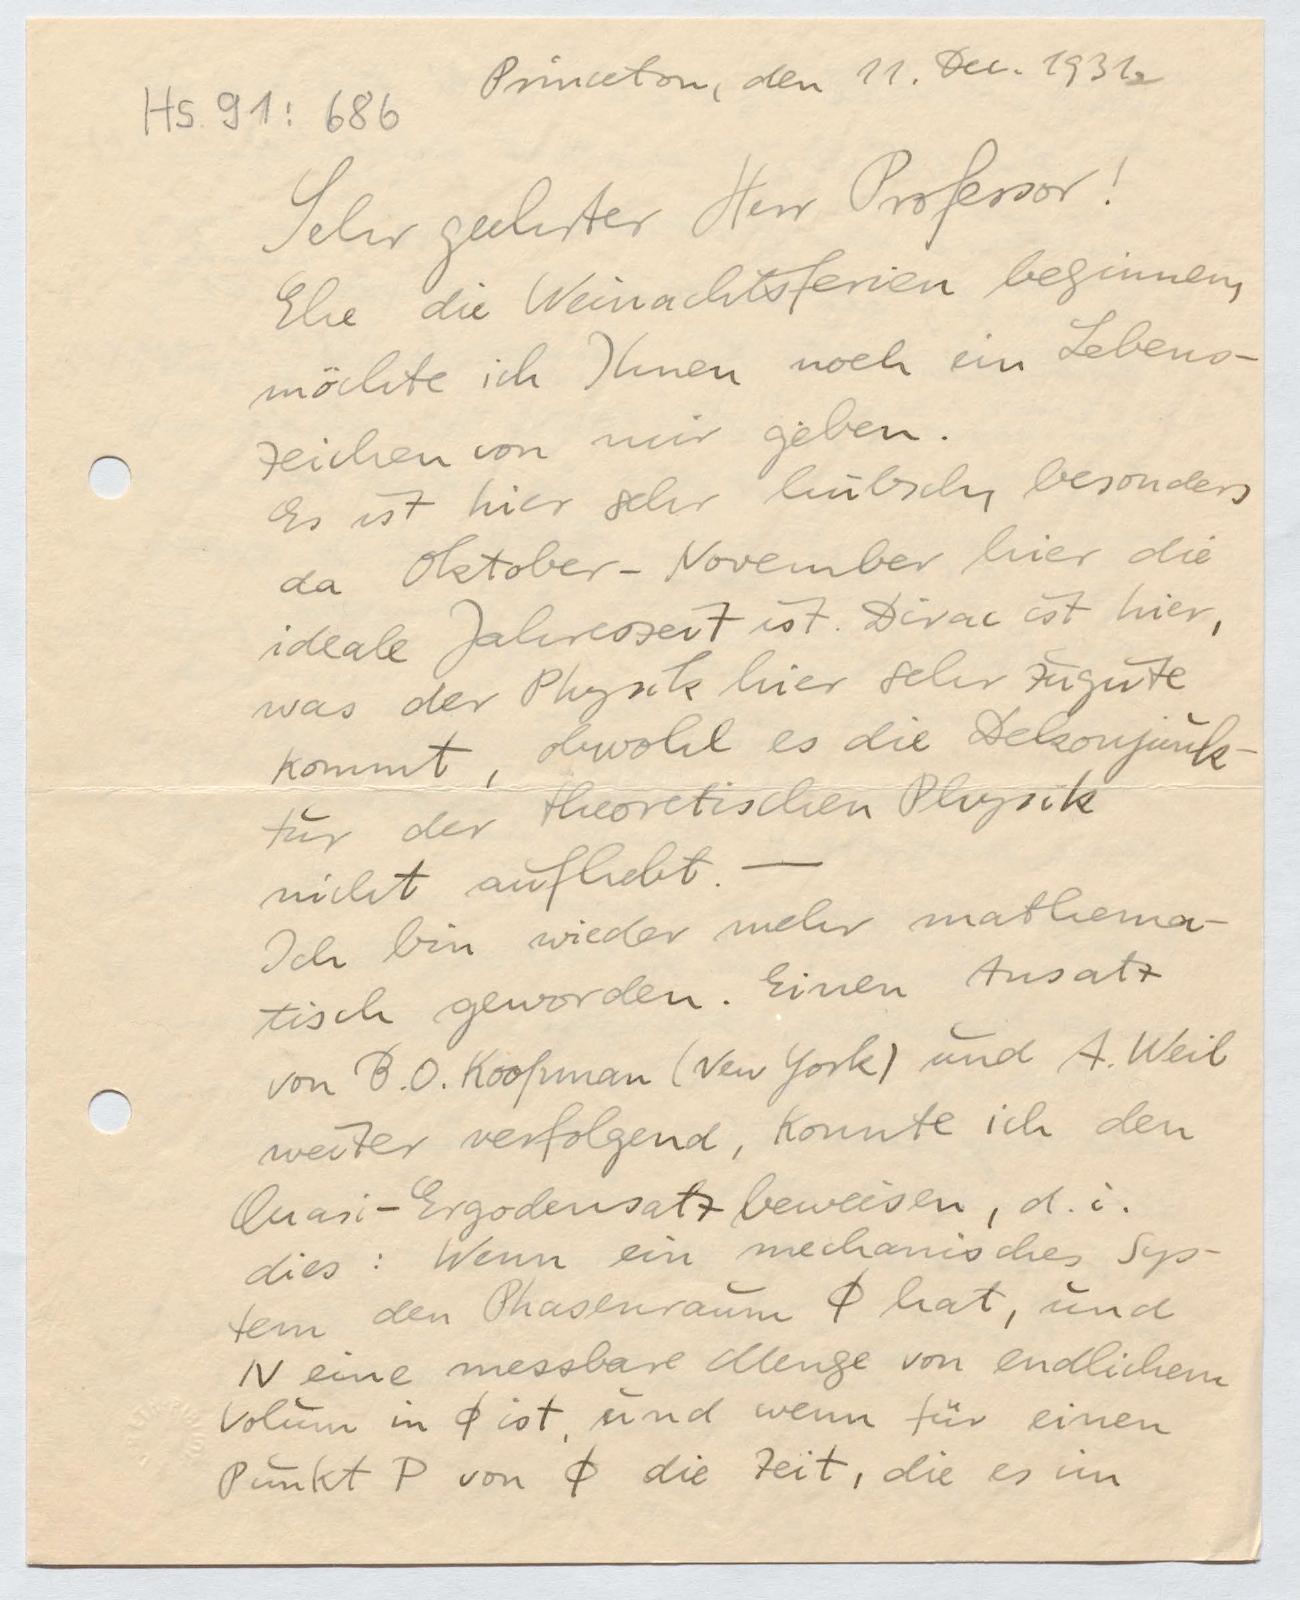 Princeton, den 11. Dec. 1931.
Hs. 91: 686
Sehr geehrter Herr Professor!
Ehe die Weinachtsferien beginnen,
möchte ich Ihnen noch ein Lebens-
zeichen von mir geben.
Es ist hier sehr hübsch, besonders
da Oktober-November hier die
ideale Jahreszeit ist. Dirac ist hier,
was der Physik hier sehr zugute
kommt, obwohl es die Dekonjunk-
tur der theoretischen Physik
nicht aufhebt. —
Ich bin wieder mehr mathema-
tisch geworden. Einen Ansatz
von B. O. Koopman (New York) und A. Weil
weiter verfolgend, konnte ich den
Quasi-Ergodensatz beweisen, d. i.
dies: Wenn ein mechanisches Sys-
tem den Phasenraum Φ hat, und
N eine messbare Menge von endlichem
Volum in Φ ist, und wenn für einen
Punkt P von Φ die Zeit, die es im